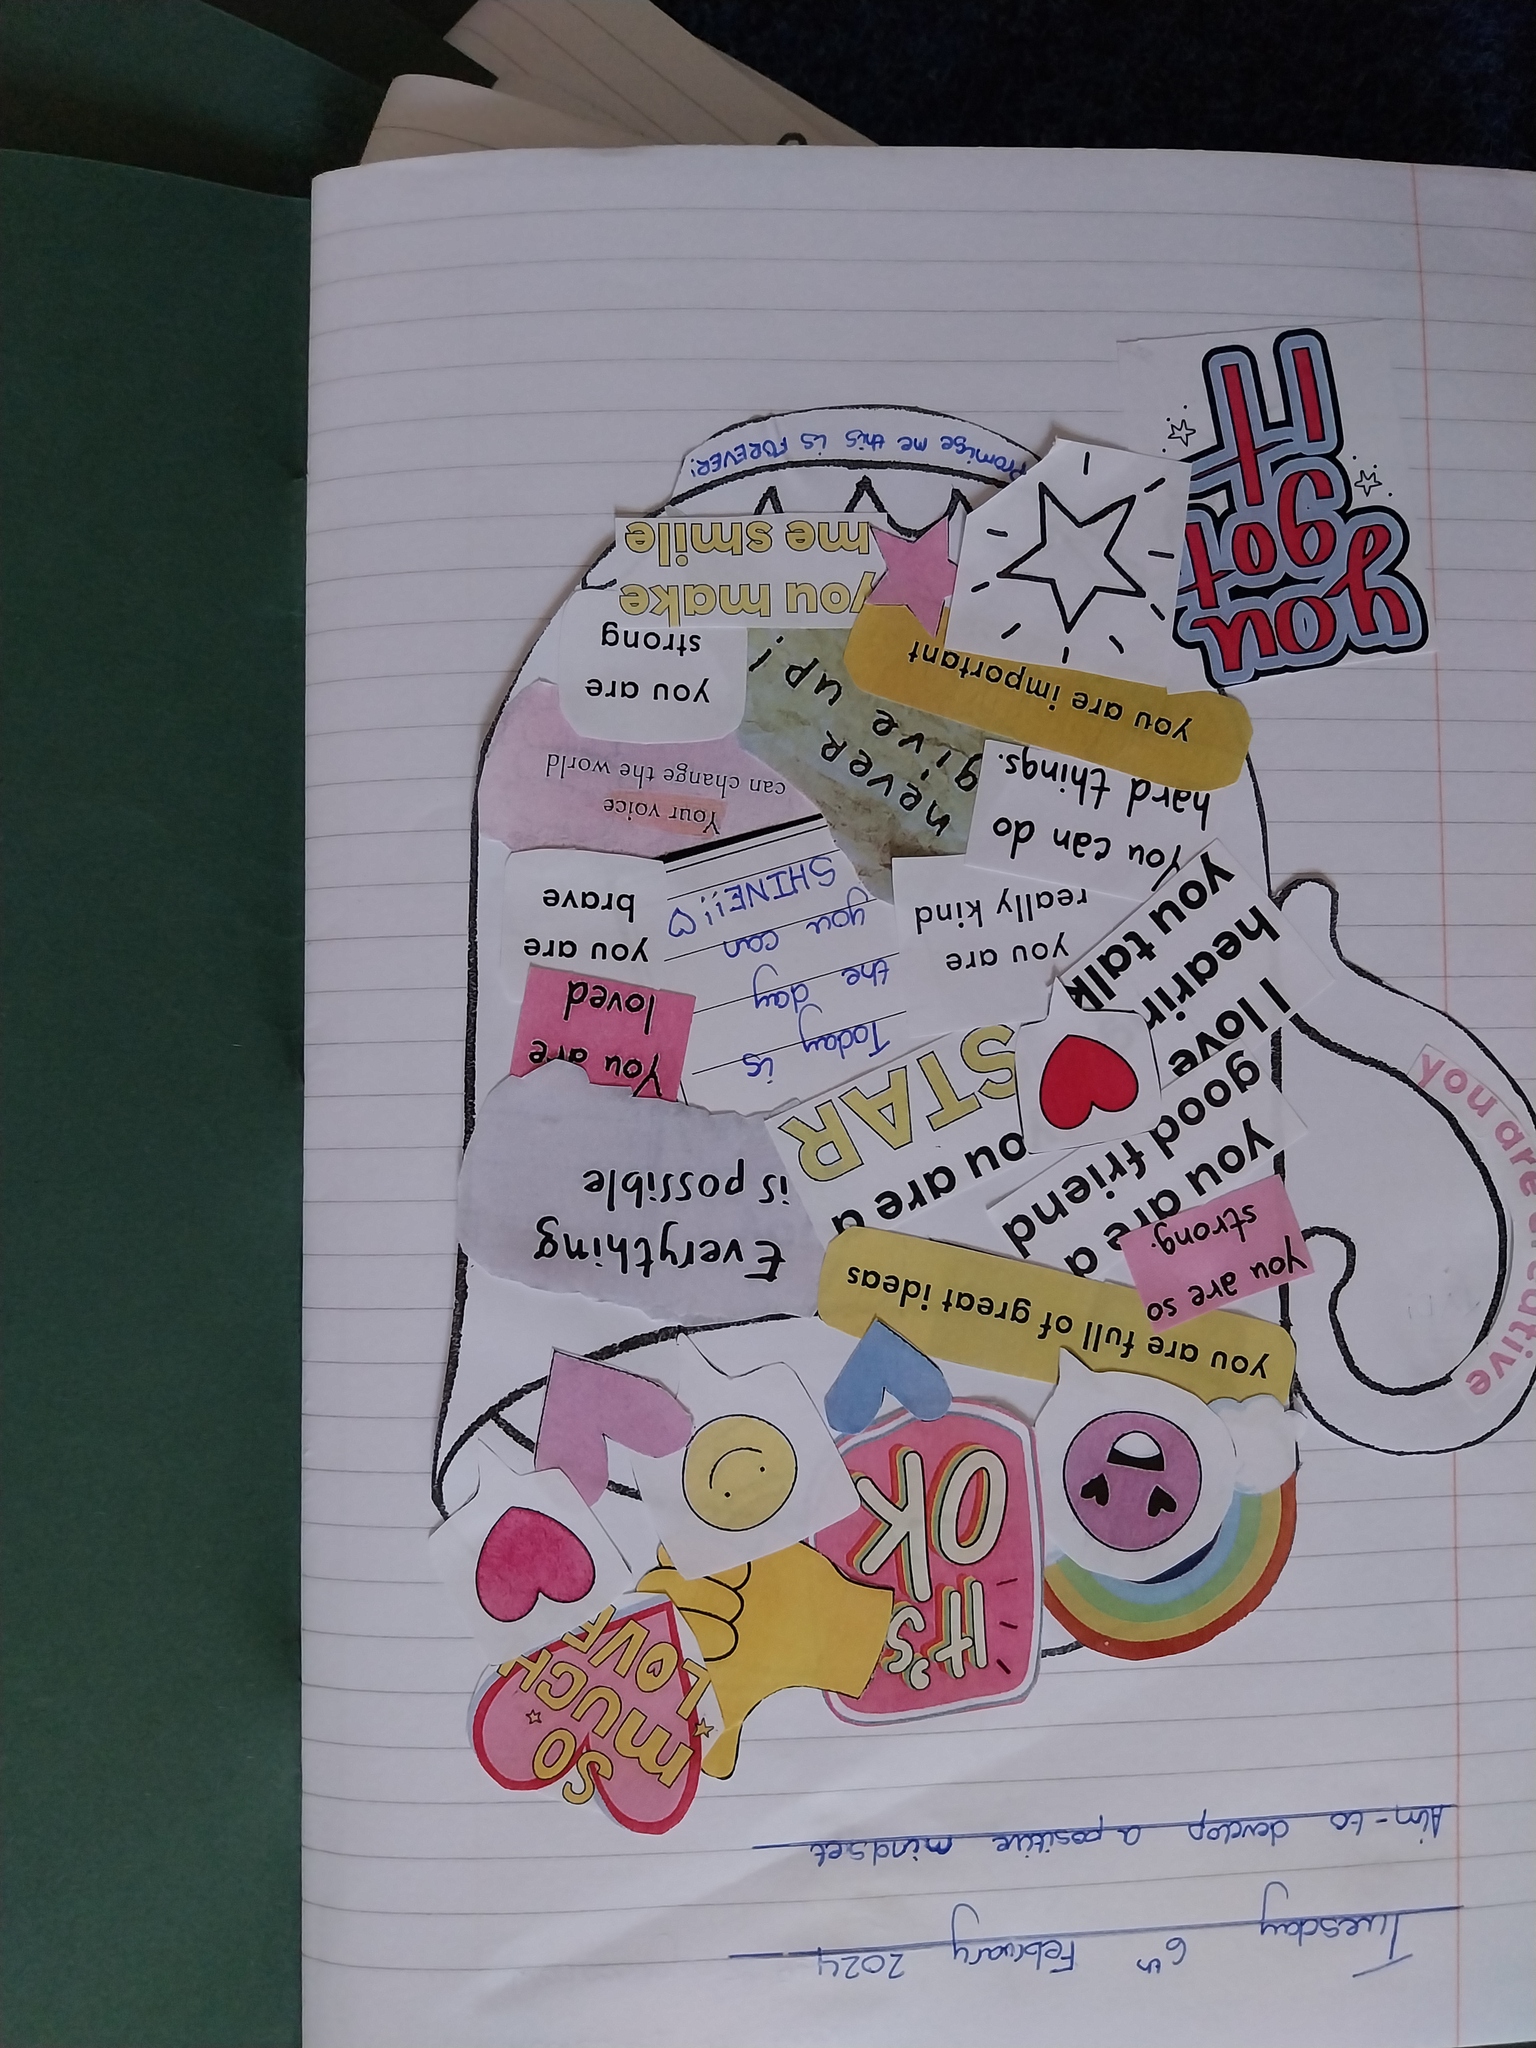 Tuesday 6th February 2024
Aim - to develop a positive mindset
SO
MUCH
LOVE
It's
OK
you are full of great ideas
you are so
strong.
you are a
good friend
you are a
STAR
Everything
is possible
I love
hearing
you talk
You are
loved
Today is
the day
you can
SHINE!!
you are
really kind
you are
brave
You can do
hard things.
Your voice
can change the world
never
give up!
you are important
you are
strong
you make
me smile
you
got
IT
Promise me this is FOREVER!
you are creative